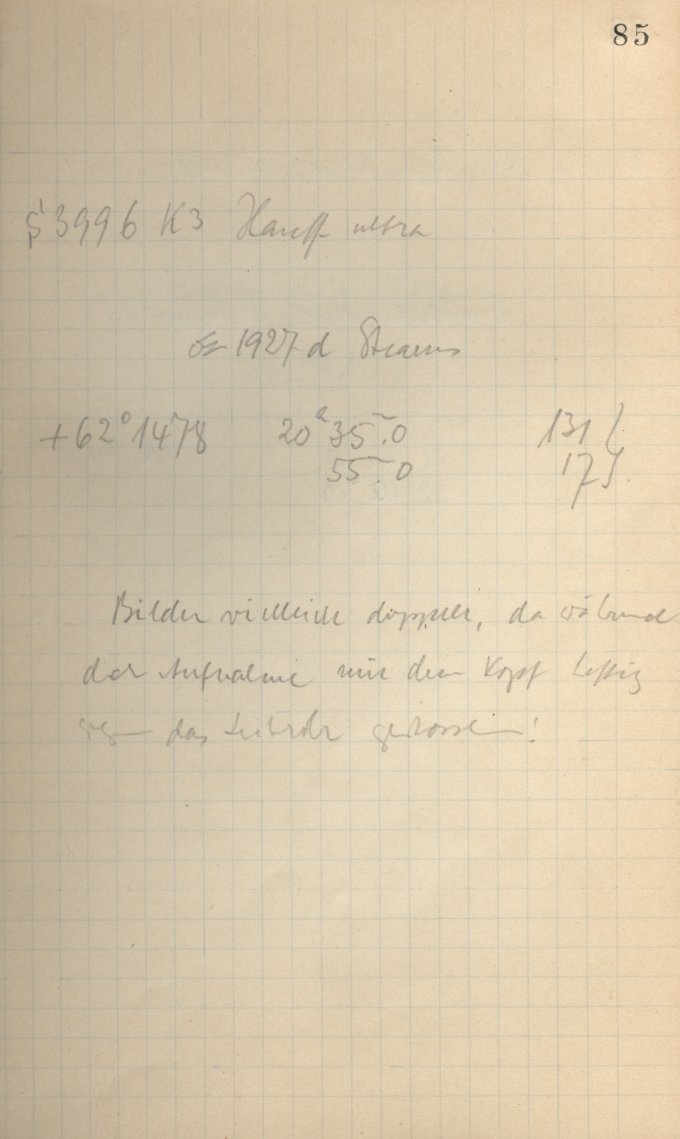 85
S 3996 K3 Hauff ultra
1927 d Stearns
+62° 1478 20h 35m.0 131 }
55m.0 17 }
Bilder vielleicht doppelt, da während
der Aufnahme mit dem Kopf heftig
gegen das Leitrohr gestossen!